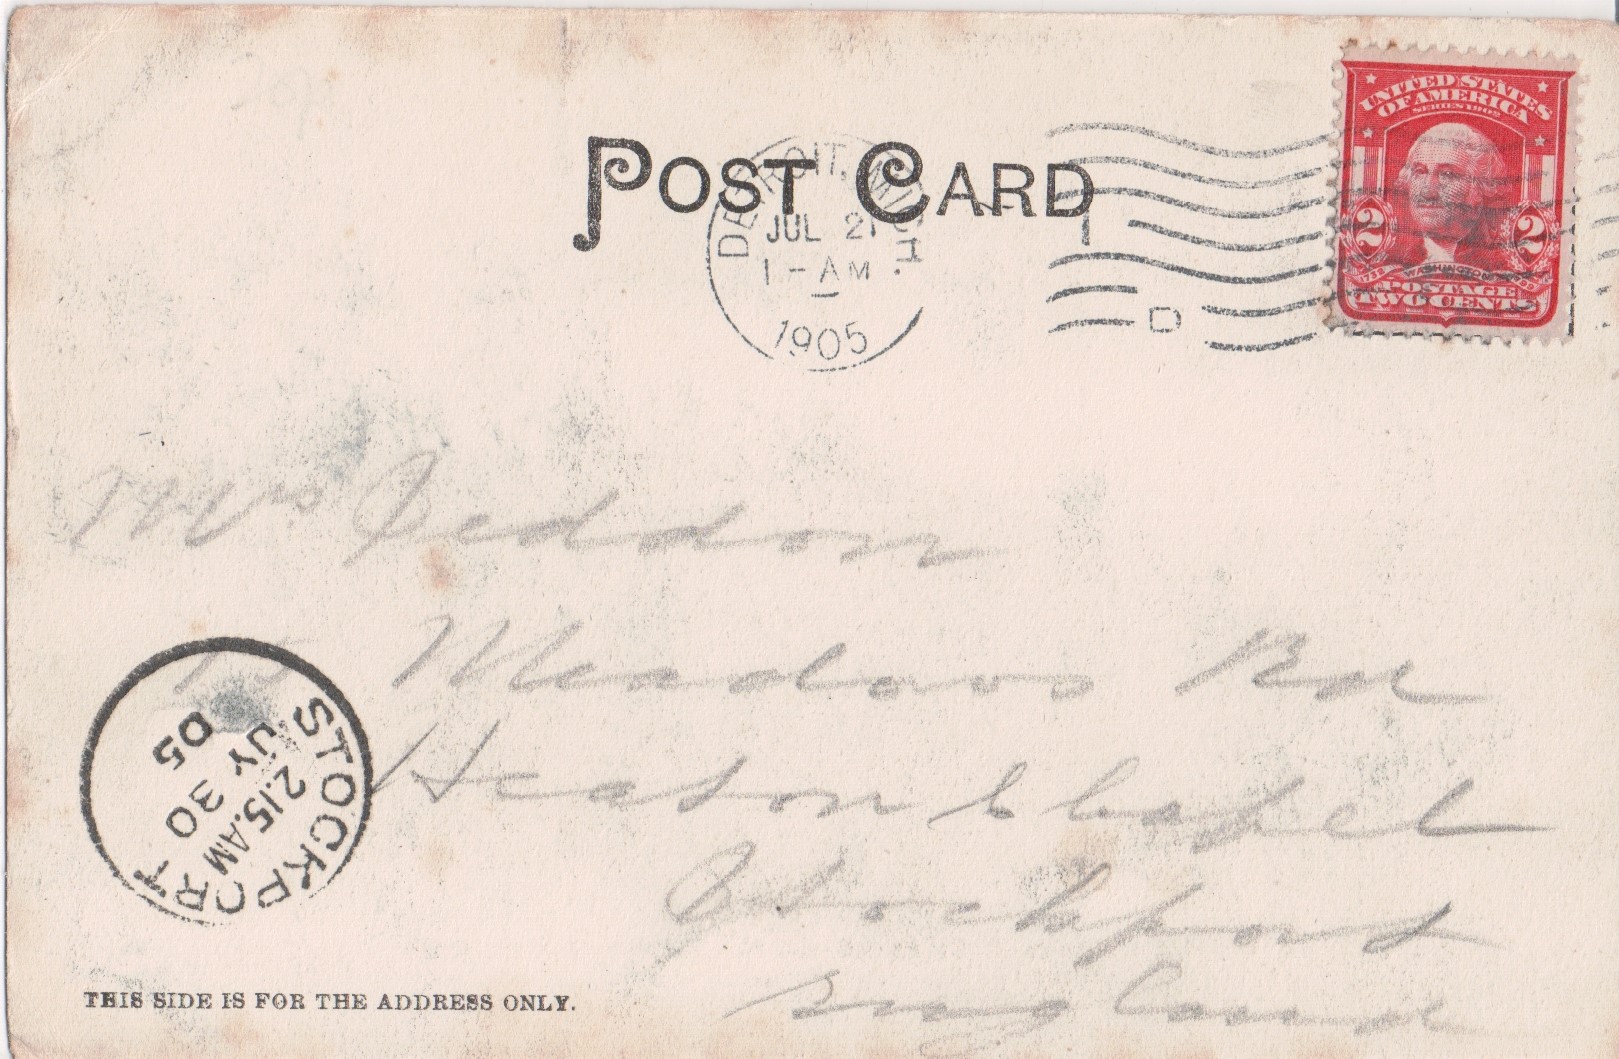 POST CARD
DETROIT, MICH.
JUL 21
1-AM
1905
D
UNITED STATES
OF AMERICA
SERIES 1902
2 2
1732 WASHINGTON 1799
POSTAGE
TWO CENTS
Mrs Seddon
Meadows Rd
Heaton Chapel
Stockport
England
STOCKPORT
2.15.AM
JY 30
05
THIS SIDE IS FOR THE ADDRESS ONLY.